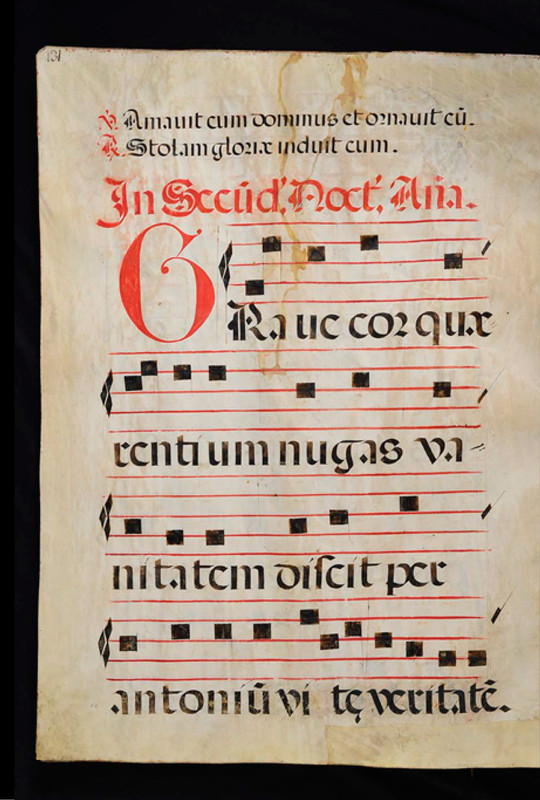 131
V. Amauit eum dominus et ornauit eū.
R. Stolam gloriæ induit eum.
In Secūd'. Noct'. Aña.
GRaue cor quæ
rentium nugas va=
nitatem discit per
antoniū vi tę veritatē.